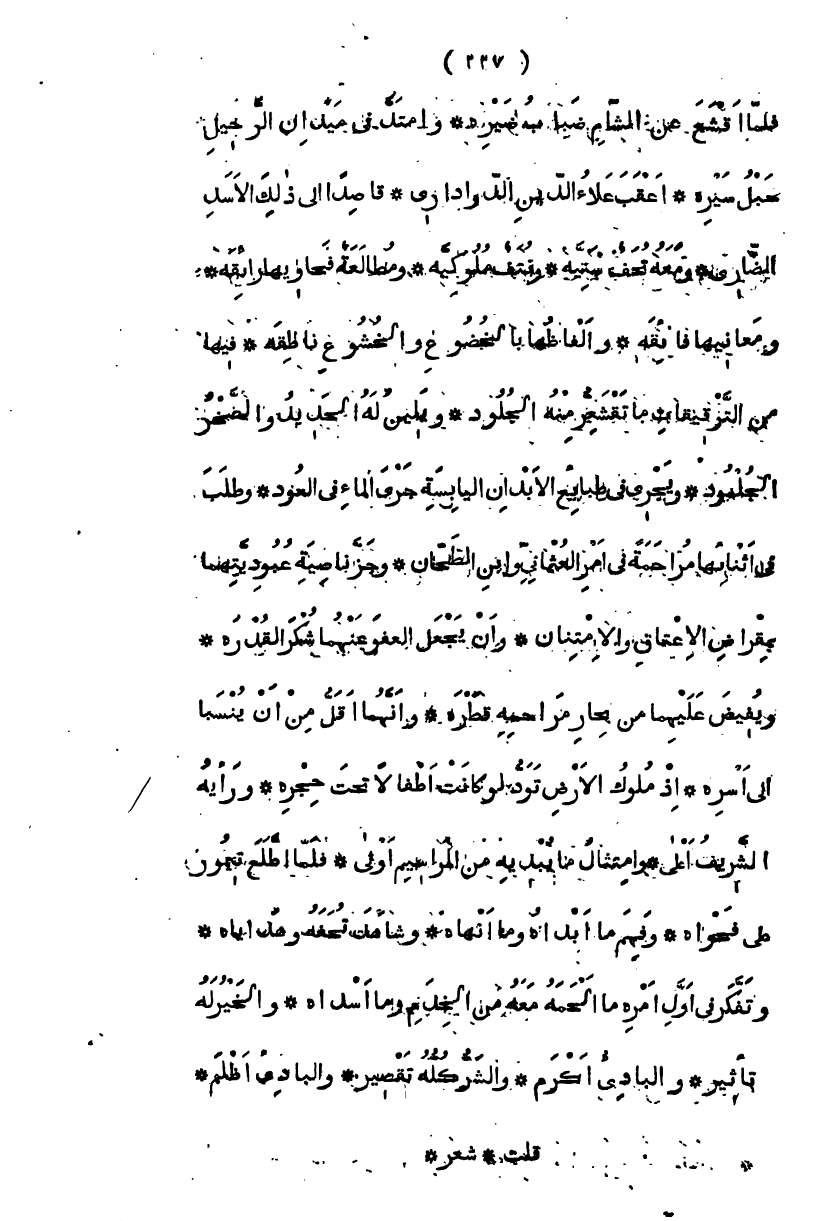 ( ٢٢٧ )
فلمّا اَقْشَعَ عن المشَامِ ضَبابُ ضَيْرِه * وامتَدَّ فى مَيْدانِ الرَّحِيلِ
حَبْلُ سَيْرِه * اَعْقَبَ عَلاءُ الدّينِ الدّوادارى * قاصِدًا الى ذٰلِكَ الاَسَدِ
الضّارى * ومَعَهُ تُحَفٌ سَنِيَّه * ونُتَفٌ مُلُوكِيَّه * ومُطالَعَةٌ فَحاوِيها رائِقَه *
ومَعانِيها فائِقَه * واَلْفاظُها بالخُضُوعِ والخُشُوعِ ناطِقَه * فيها
من التَّرْقيقاتِ ما تَقْشَعِرُّ مِنْهُ الجُلُود * ويَلِينُ لَهُ الحَدِيدُ والصَّخْرُ
الجُلْمُود * ويَجْرِى فى طبايِعِ الاَبْدانِ اليابِسَةِ جَرْىَ الماءِ فى العُود * وطلَبَ
فى اَثْنائِها مُراحَمَةً فى اَمْرِ العُثْمانِىّ وابنِ الطَّحّان * وجَزَّ ناصِيَةِ عُبُودِيَّتِهِما
بمِقْراضِ الاِعْتاقِ والاِمْتِنان * واَنْ يَجْعَلَ العفوَ عَنْهُما شُكْرَ القُدْرَه *
ويُفِيضَ عَلَيْهِما من بحارِ مَراحمِهِ قَطْرَه * واَنَّهُما اَقَلُّ مِنْ اَنْ يُنْسَبا
الى اَسْرِه * اِذْ مُلوكُ الاَرْضِ تَوَدُّ لو كانَتْ اَطْفالاً تحتَ حِجْرِه * ورَأيُهُ
الشَّريفُ اَعْلى * وامتثالُ ما يُبْدِيهِ من المَراسِيمِ اَوْلى * فلمّا اطَّلَعَ تيمُور
على فَحْواه * وفَهِمَ ما اَبْداهُ وما اَنْهاه * وشاهَدَ تُحَفَهُ وهَداياه *
وتَفَكَّرَ فى اَوَّلِ اَمْرِه ما اَلْحَمَهُ مَعَهُ من الخِدَمِ وما اَسْداه * والخَيْرُ لَهُ
تأثير * والبادِىُ اَكْرَم * والشَّرُّ كُلُّهُ تَقْصير * والبادِئُ اَظْلَم *
* قلت * شعر *